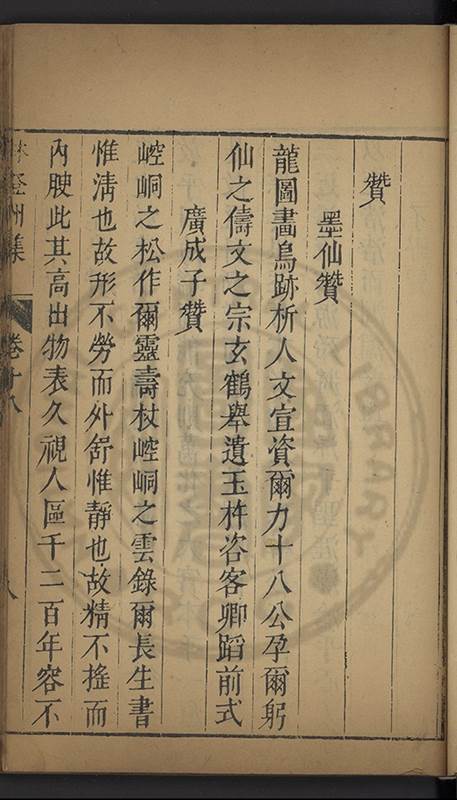 贊
墨仙贊
龍圖畵鳥跡析人文宣資爾力十八公孕爾躬
仙之儔文之宗玄鶴舉遺玉杵咨客卿蹈前式
廣成子贊
崆峒之松作爾靈壽杖崆峒之雲錄爾長生書
惟淸也故形不勞而外舒惟靜也故精不搖而
內腴此其高出物表久視人區千二百年容不
林登州集
卷十八
八